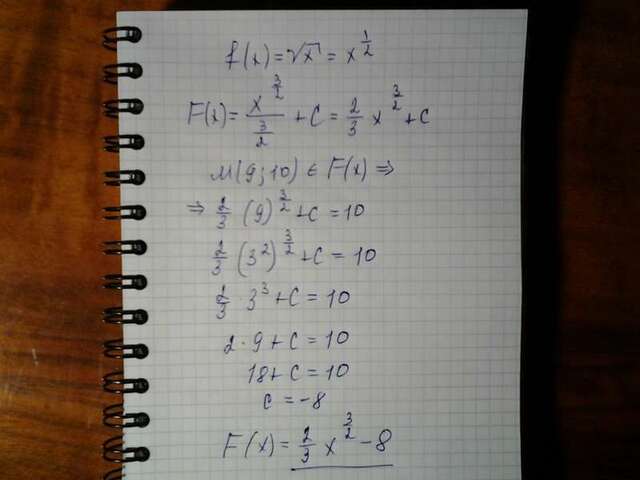 f(x)=√x = x^(1/2)
F(x)= x^(3/2) / (3/2) + C = 2/3 x^(3/2) + C
M(9;10) ∈ F(x) ⇒
⇒ 2/3 (9)^(3/2) + C = 10
2/3 (3^2)^(3/2) + C = 10
2/3 · 3^3 + C = 10
2 · 9 + C = 10
18 + C = 10
C = -8
F(x) = 2/3 x^(3/2) - 8